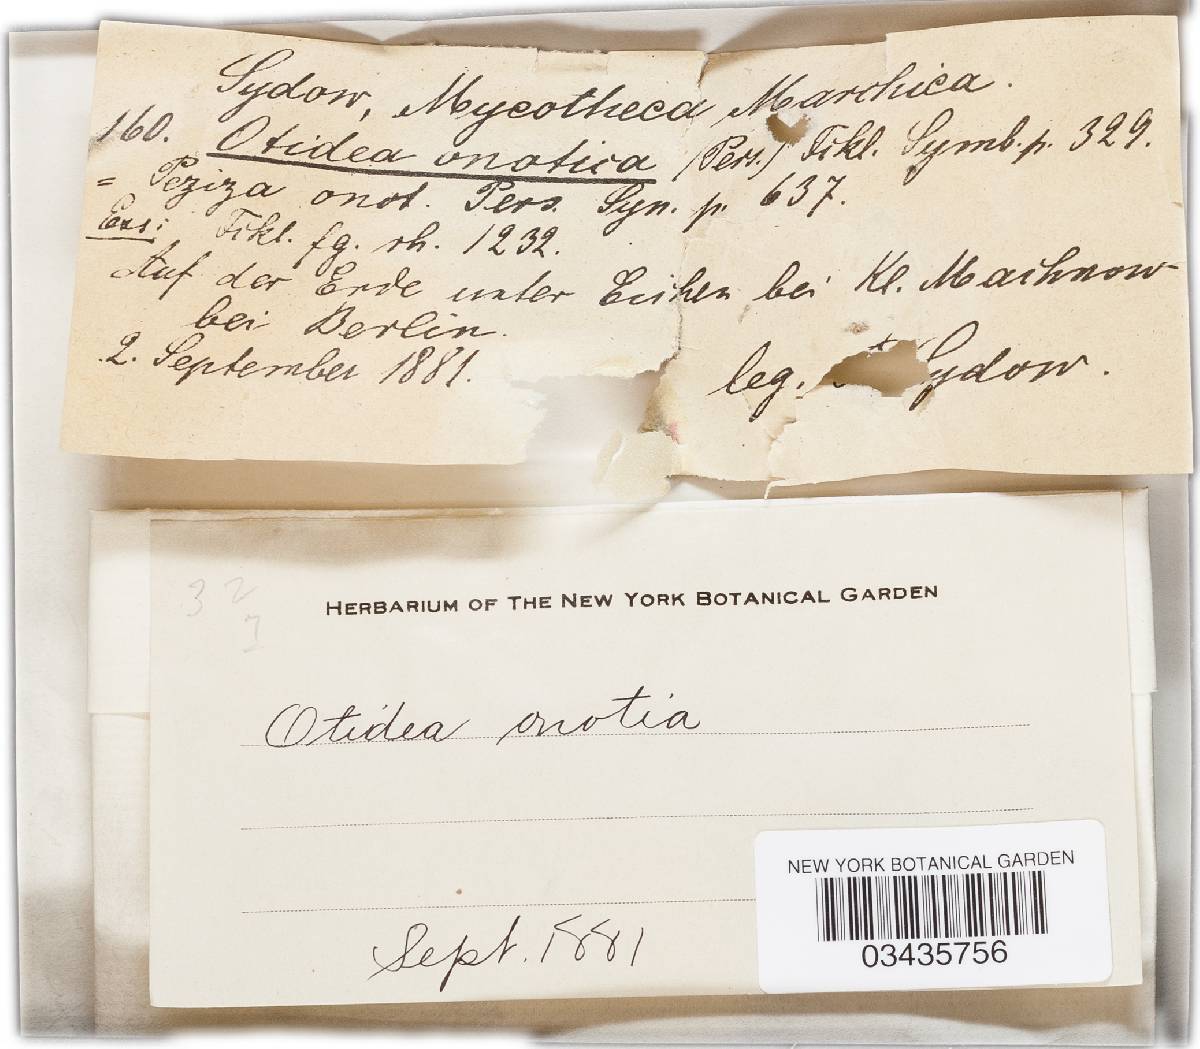 Sydow, Mycotheca Marchica.
160. Otidea onotica (Pers.) Fckl. Symb. p. 329.
= Peziza onot. Pers. Syn. p. 637.
Exs: Fckl. fg. rh. 1232.
Auf der Erde unter Eichen bei Kl. Machnow
bei Berlin.
2. September 1881.
leg. Sydow.
32
7
HERBARIUM OF THE NEW YORK BOTANICAL GARDEN
Otidea onotia
Sept. 1881
NEW YORK BOTANICAL GARDEN
03435756